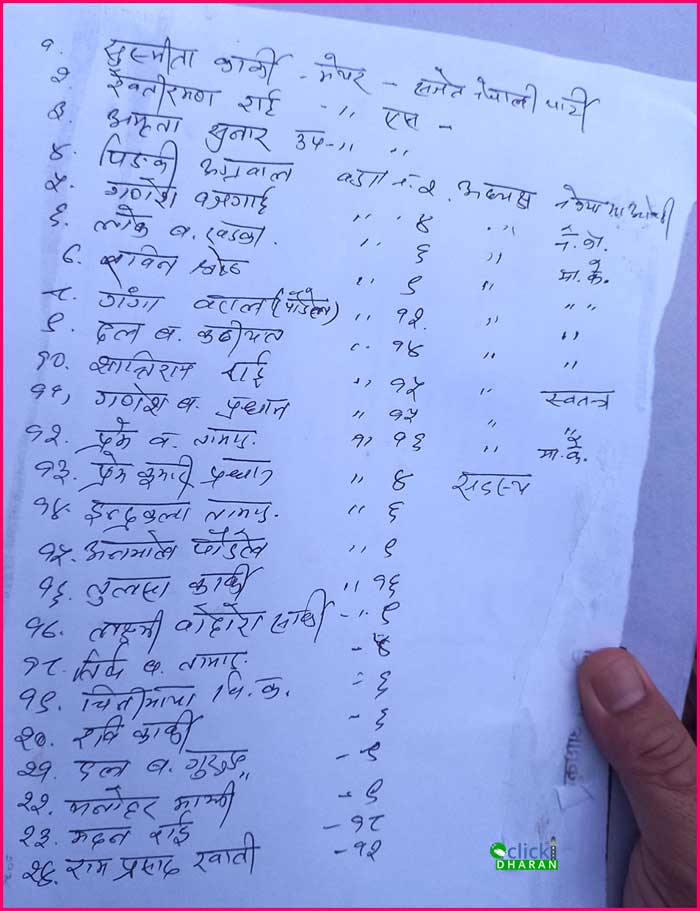 १. सुस्मीता कार्की - मेयर - सचेत नेपाली पार्टी
२. रेवतीरमण राई - " एस -
३. अमृता सुनार उप-" "
४. पिङकी अग्रवाल वडा नं. २. अध्यक्ष
५. गणेश बजगाई " " ४ " ने. काँ.
६. लोक ब. खडका. " ६ " मा. के.
७. साबित श्रेष्ठ " ९ " " "
८. गंगा वताल (पौडेल) " १२. " "
९. दल ब. कठायत " १४ " "
१०. शान्तिराम राई " १५ " स्वतन्त्र
११. गणेश ब. प्रधान " १५ " "
१२. प्रेम ब. तामाङ. " १६ " मा. के.
१३. प्रेम कुमारी प्रधान " ४ सदस्य
१४. इन्द्रकला तामाङ. " ६
१५. पौडेल " ९
१६. तुलसा कार्की " १६
१७. लक्ष्मी वोहोरा सार्की - " ९
१८. तिर्थ ब. तामाङ. - ४
१९. चित्रीमाया वि. क. - ६
२०. रवि कार्की - ६
२१. दल ब. गुरुङ - ९
२२. मनोहर माझी - ९
२३. मदन राई - १८
२४. राम प्रसाद खाती - १२
click
DHARAN